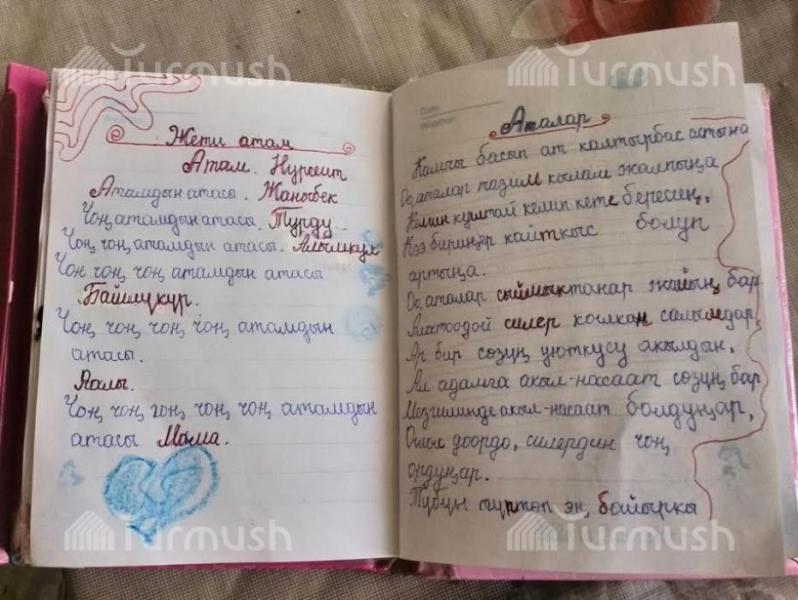 Turmush
Turmush
Жети атам
Атам. Нурсеит
Атамдын атасы. Жаныбек
Чоң атамдын атасы. Турду
Чоң, чоң атамдын атасы. Алымкул
Чоң чоң, чоң атамдын атасы
Байшүкүр.
Чоң, чоң, чоң, чоң, атамдын
атасы.
Яалы.
Чоң, чоң, гоң, чоң, чоң, атамдын
атасы Мама.
Аталар
Камчы басып ат калтырбас астына
Оо, аталар тазим кылам жалпыңа
келип кете бересең,
Кээ бириңер кайткыс болуп
артыңа.
Оо, аталар сыймыктанар жайың бар
Алатоодой силер койкан салымдар,
Ар бир сөзүң уюткусу акылдын,
Ал адамга акыл-насаат сөзүң бар
Мезгилинде акыл-насаат болдуңар,
доордо, силердин чоң
ордуңар.
түртөп эң, байыркы
Turmush
Turmush